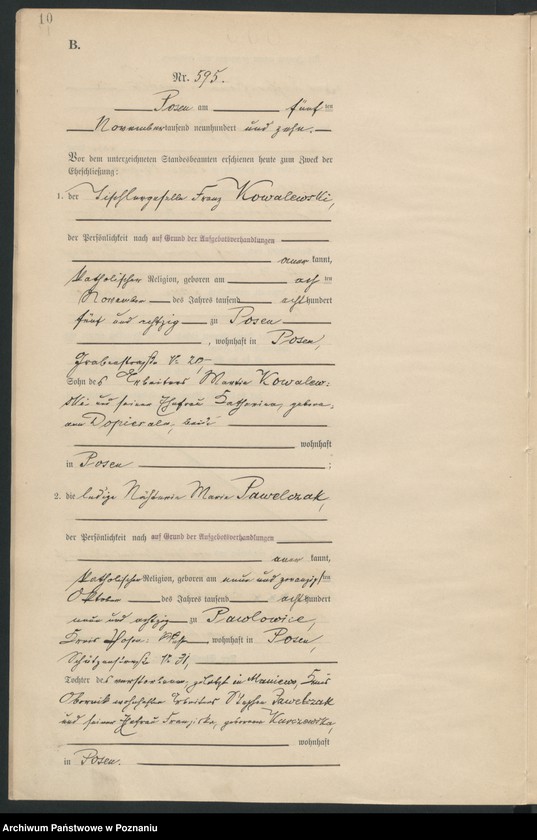 10
B.
Nr. 595.
Posen am fünften
November tausend neunhundert und zehn.
Vor dem unterzeichneten Standesbeamten erschienen heute zum Zweck der
Eheschließung:
1. der Tischlergeselle Franz Kowalewski,
der Persönlichkeit nach auf Grund der Aufgebotsverhandlungen
anerkannt,
katholischer Religion, geboren am achten
November des Jahres tausend achthundert
fünf und achtzig zu Posen
, wohnhaft in Posen,
Grabenstraße № 20,
Sohn des Arbeiters Martin Kowalew-
ski und seiner Ehefrau Katharina, gebore-
nen Dopierala, beide
wohnhaft
in Posen ;
2. die ledige Nähterin Marie Pawelczak,
der Persönlichkeit nach auf Grund der Aufgebotsverhandlungen
anerkannt,
katholischer Religion, geboren am neun und zwanzigsten
Oktober des Jahres tausend achthundert
neun und achtzig zu Pawlowice,
Kreis Posen West, wohnhaft in Posen,
Schützenstraße № 31,
Tochter des verstorbenen, zuletzt in Maniewo, Kreis
Obornik wohnhaften Arbeiters Stephan Pawelczak
und seiner Ehefrau Franziska, geborenen Kurczewska,
wohnhaft
in Posen.
Archiwum Państwowe w Poznaniu